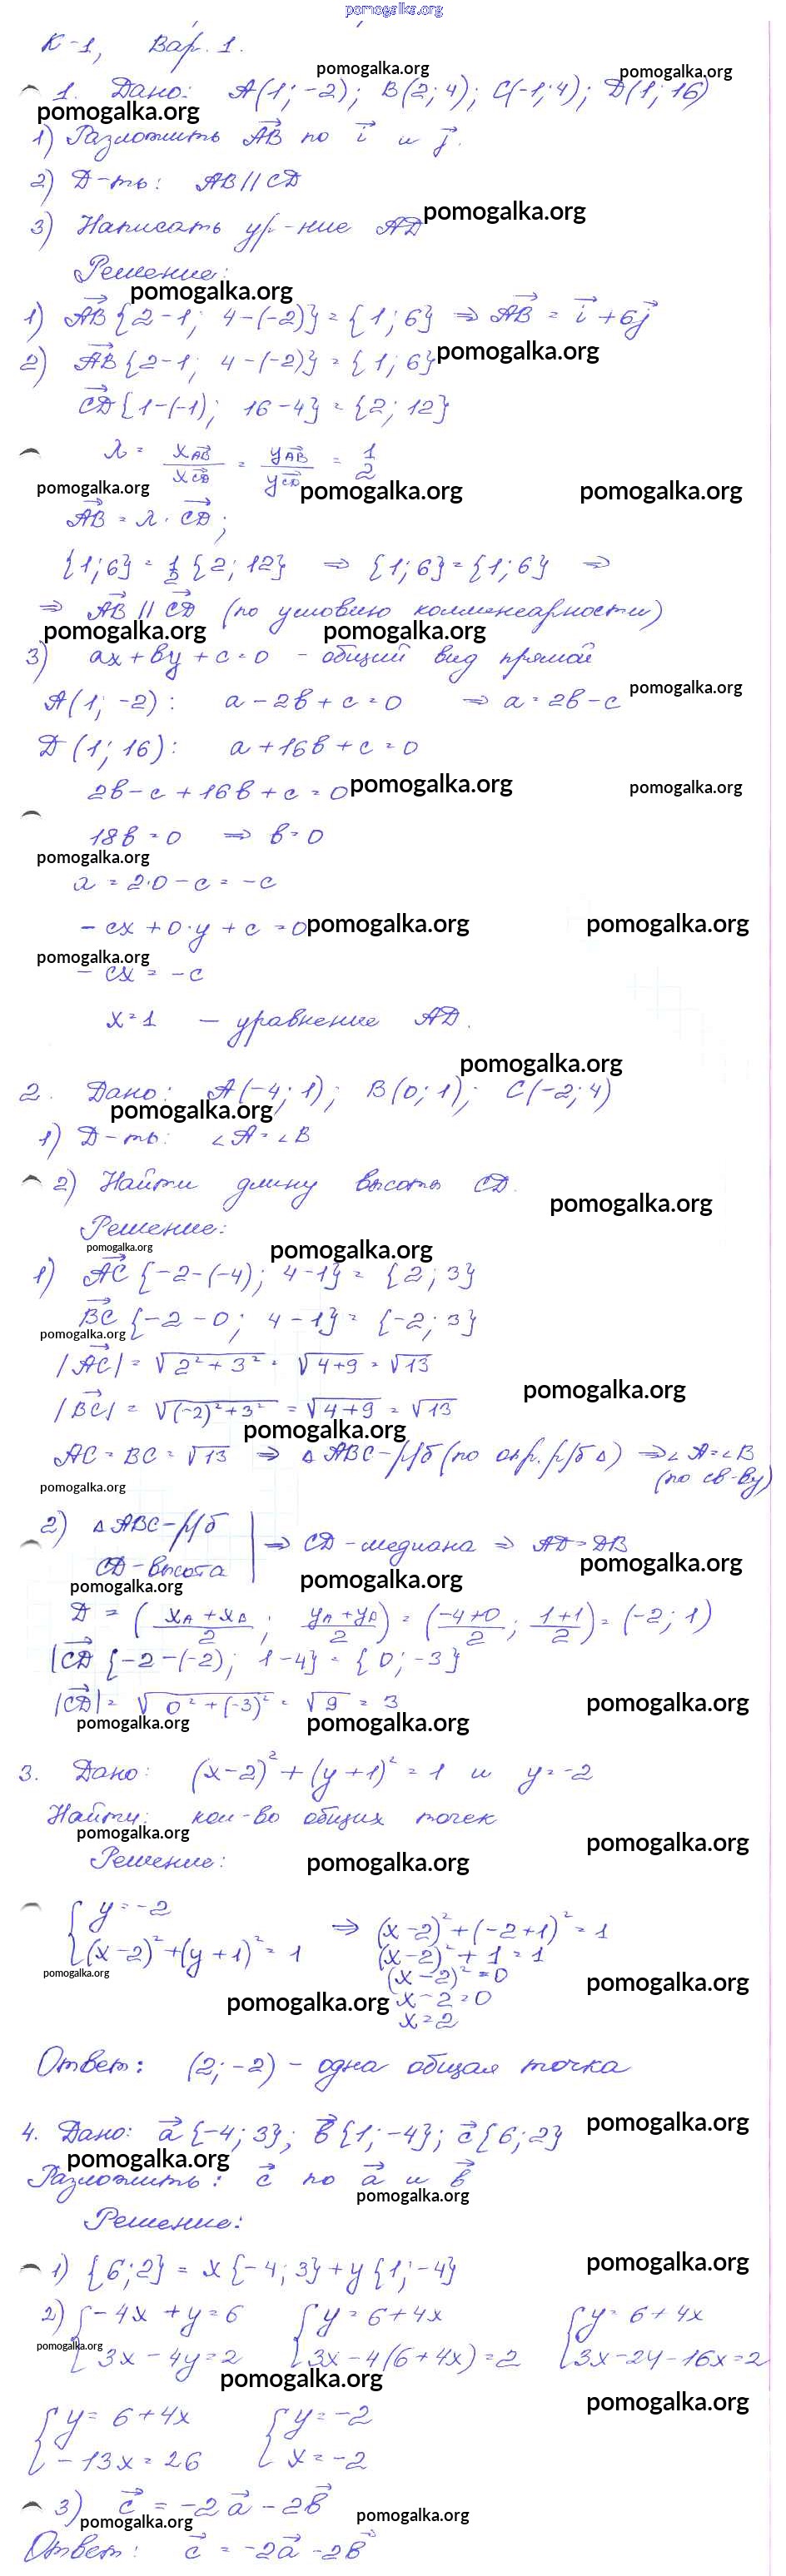 pomogalka.org
К-1, Вар. 1.
pomogalka.org pomogalka.org
1. Дано: A(1; -2); B(2; 4); C(-1; 4); D(1; 16)
pomogalka.org
1) Разложить AB по i и j.
2) Д-ть: AB || CD
3) Написать ур-ние AD pomogalka.org
Решение:
pomogalka.org
1) AB {2-1; 4-(-2)} = {1; 6} ⇒ AB = i + 6j
2) AB {2-1; 4-(-2)} = {1; 6} pomogalka.org
CD {1-(-1); 16-4} = {2; 12}
λ = xAB/xCD = yAB/yCD = 1/2
pomogalka.org pomogalka.org pomogalka.org
AB = λ · CD;
{1; 6} = 1/2 {2; 12} ⇒ {1; 6} = {1; 6} ⇒
⇒ AB || CD (по условию коллинеарности)
pomogalka.org pomogalka.org
3) ax + by + c = 0 - общий вид прямой
A(1; -2): a - 2b + c = 0 ⇒ a = 2b - c pomogalka.org
D(1; 16): a + 16b + c = 0
2b - c + 16b + c = 0 pomogalka.org pomogalka.org
18b = 0 ⇒ b = 0
pomogalka.org
a = 2·0 - c = -c
-cx + 0·y + c = 0 pomogalka.org pomogalka.org
pomogalka.org
-cx = -c
x = 1 - уравнение AD.
pomogalka.org
2. Дано: A(-4; 1); B(0; 1); C(-2; 4)
pomogalka.org
1) Д-ть: ∠A = ∠B
2) Найти длину высоты CD.
pomogalka.org
Решение:
pomogalka.org pomogalka.org
1) AC {-2-(-4); 4-1} = {2; 3}
BC {-2-0; 4-1} = {-2; 3}
pomogalka.org
|AC| = √2² + 3² = √4+9 = √13
pomogalka.org
|BC| = √(-2)² + 3² = √4+9 = √13
pomogalka.org
AC = BC = √13 ⇒ △ABC - р/б (по опр. р/б △) ⇒ ∠A = ∠B
(по св-ву)
pomogalka.org
2) △ABC - р/б
CD - высота ⇒ CD - медиана ⇒ AD = DB
pomogalka.org
pomogalka.org pomogalka.org
D = (xA + xB/2; yA + yB/2) = (-4+0/2; 1+1/2) = (-2; 1)
|CD {-2-(-2); 1-4} = {0; -3}
|CD| = √0² + (-3)² = √9 = 3 pomogalka.org
pomogalka.org pomogalka.org
3. Дано: (x-2)² + (y+1)² = 1 и y = -2
Найти: кол-во общих точек
pomogalka.org pomogalka.org
Решение: pomogalka.org
{ y = -2
{ (x-2)² + (y+1)² = 1 ⇒ (x-2)² + (-2+1)² = 1
(x-2)² + 1 = 1
pomogalka.org (x-2)² = 0 pomogalka.org
pomogalka.org x - 2 = 0
x = 2
Ответ: (2; -2) - одна общая точка
4. Дано: a {-4; 3}; b {1; -4}; c {6; 2} pomogalka.org
pomogalka.org
Разложить: c по a и b
pomogalka.org
Решение:
1) {6; 2} = x {-4; 3} + y {1; -4} pomogalka.org
2) { -4x + y = 6 { y = 6 + 4x { y = 6 + 4x
pomogalka.org
{ 3x - 4y = 2 { 3x - 4(6 + 4x) = 2 { 3x - 24 - 16x = 2
pomogalka.org
pomogalka.org
{ y = 6 + 4x { y = -2
{ -13x = 26 { x = -2
3) c = -2a - 2b
pomogalka.org pomogalka.org
Ответ: c = -2a - 2b